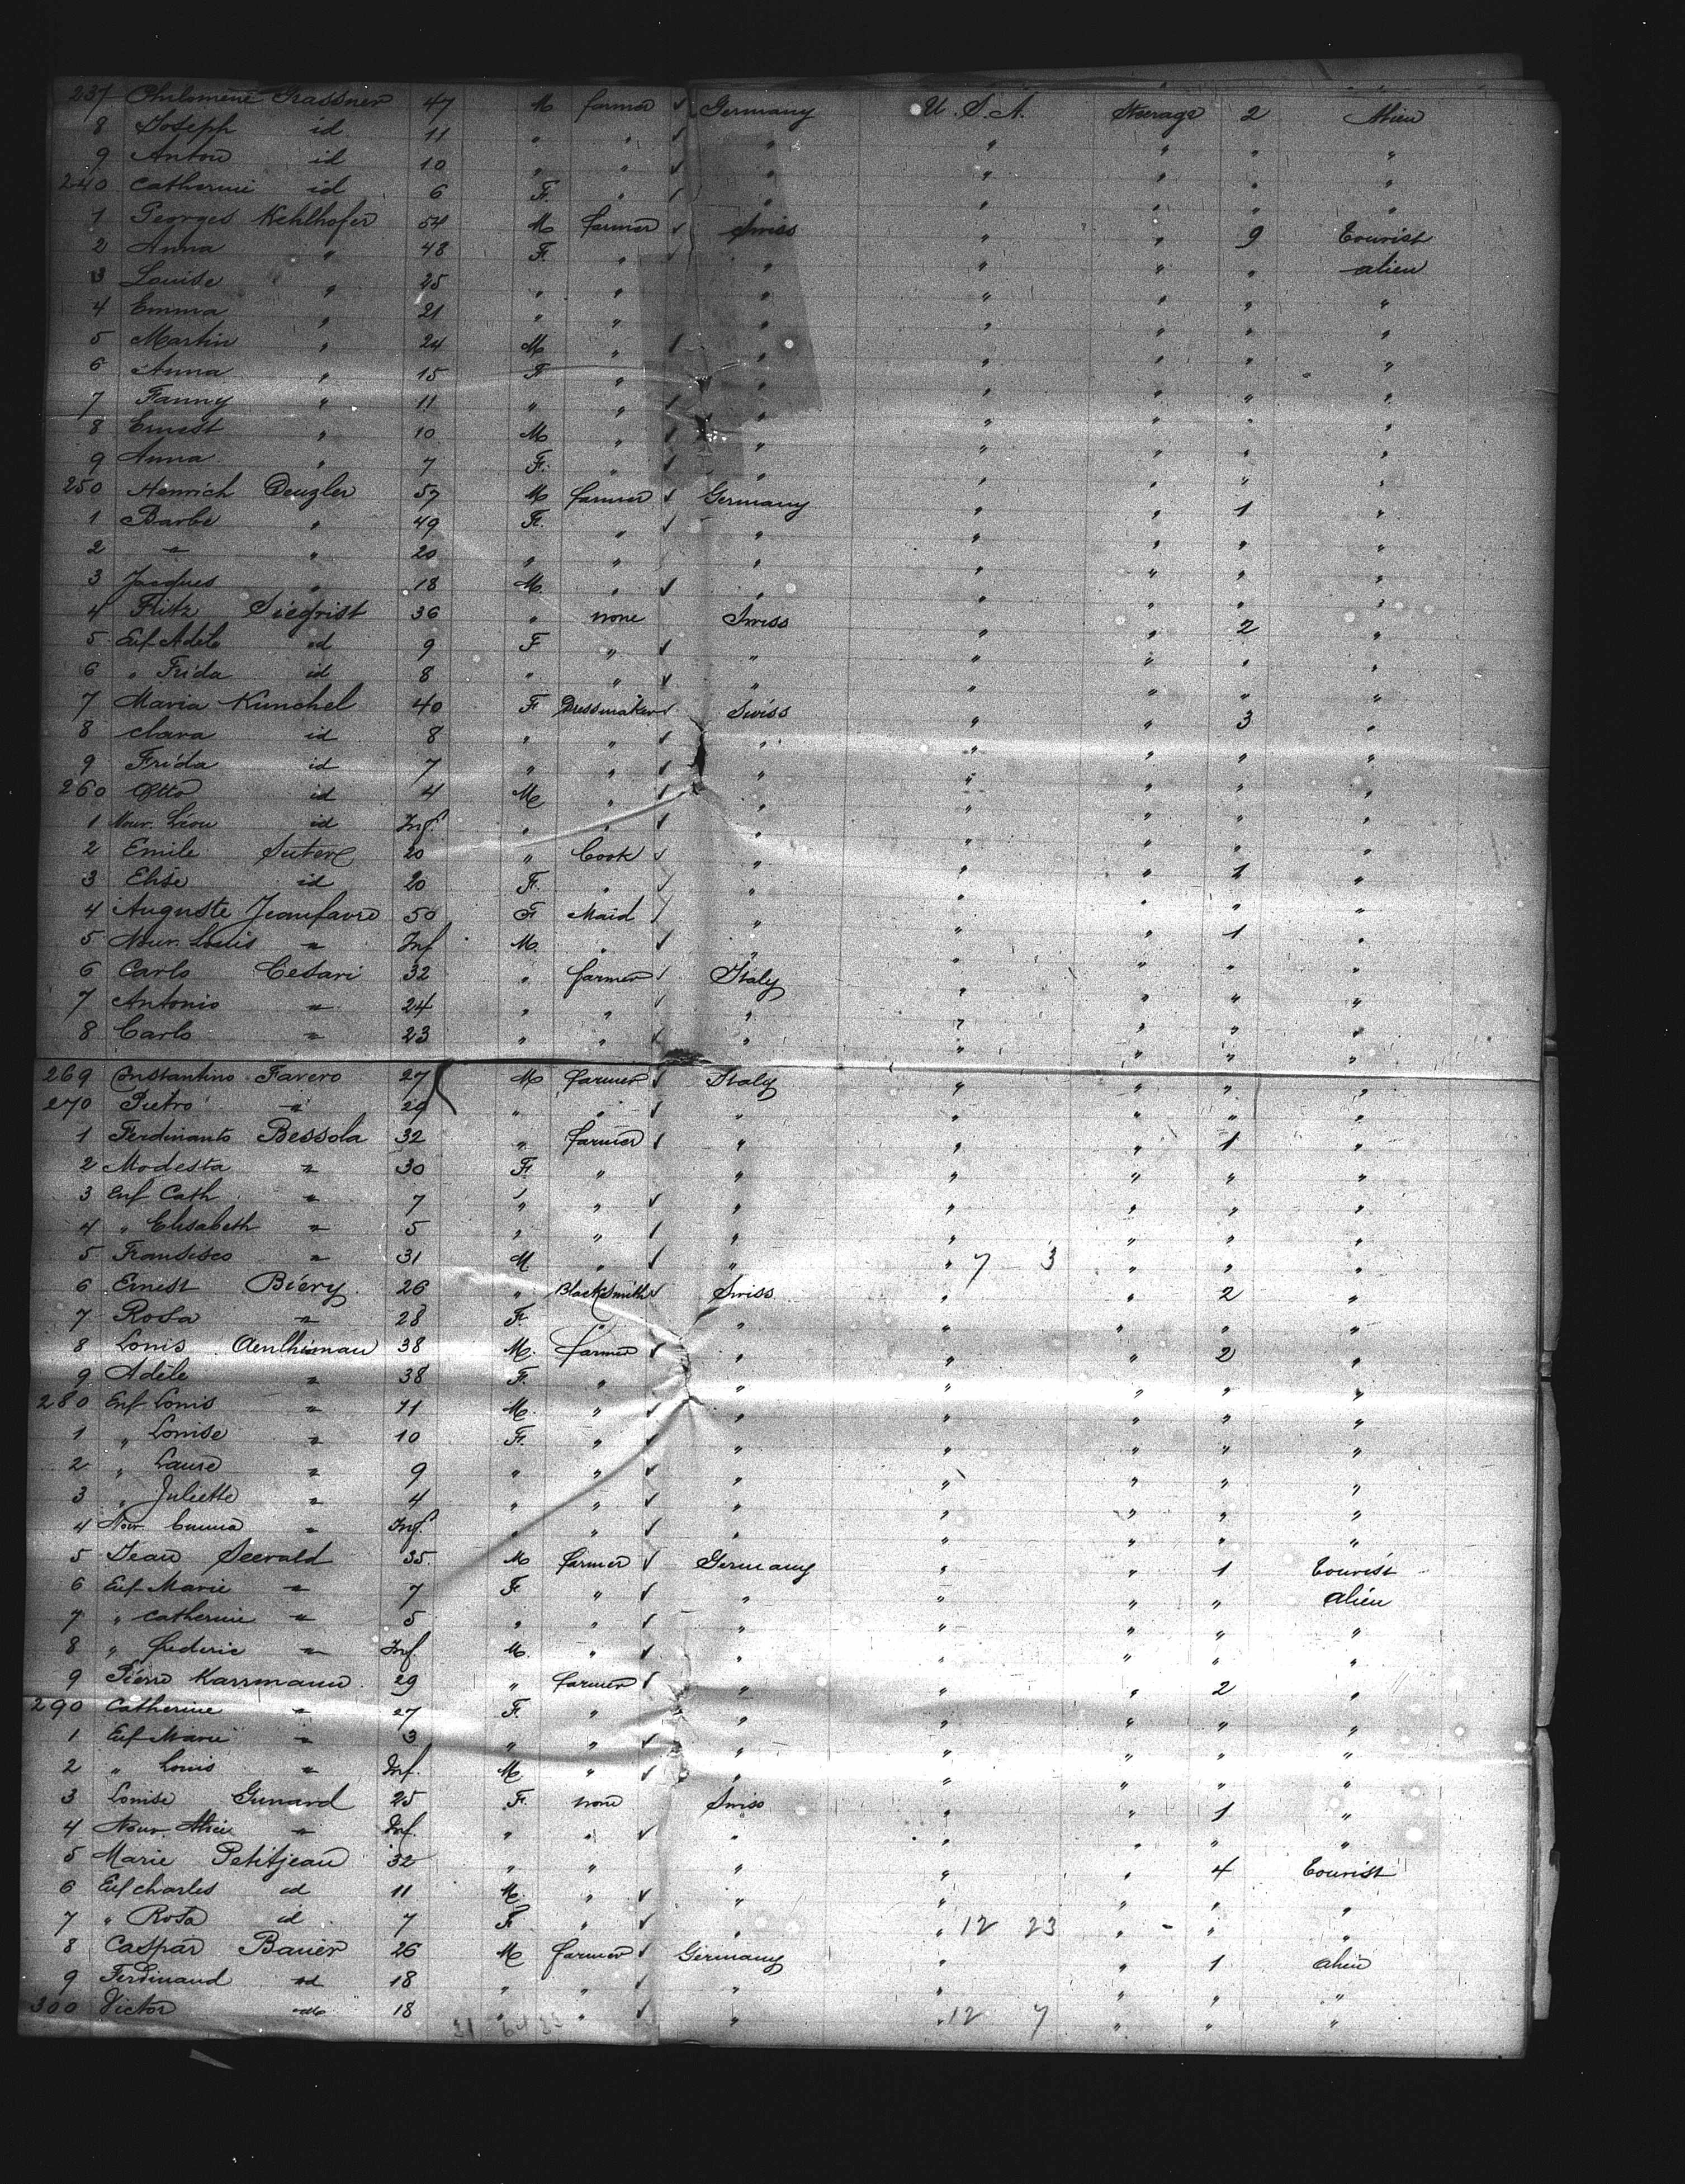 237 Philomene Grassner 47 M farmer ✓ Germany U.S.A. Steerage 2 Alien
8 Joseph id 11 " " ✓ " " " " "
9 Anton id 10 " " ✓ " " " " "
240 Catherine id 6 F. " ✓ " " " " "
1 Georges Kehlhofer 54 M farmer ✓ Swiss " " 9 Tourist
2 Anna " 48 F. " ✓ " " " " alien
3 Louise " 25 " " " " " " "
4 Emma " 21 " " " " " " "
5 Martin " 24 M " ✓ " " " " "
6 Anna " 15 F " " " " " "
7 Fanny " 11 " " ✓ " " " " "
8 Ernest " 10 M " ✓ " " " " "
9 Anna " 7 F. " ✓ " " " " "
250 Henrich Denzler 57 M farmer ✓ Germany " " 1 "
1 Barbe " 49 F. " ✓ " " " " "
2 " " 20 " " " " " " "
3 Jacques " 18 M " ✓ " " " " "
4 Fritz Siegrist 36 " none Swiss " " 2 "
5 Enf Adele id 9 F " ✓ " " " " "
6 " Frida id 8 " " ✓ " " " " "
7 Maria Kunchel 40 F Dressmaker ✓ Swiss " " 3 "
8 Clara id 8 " " ✓ " " " " "
9 Frida id 7 " " ✓ " " " " "
260 Otto id 4 M " ✓ " " " " "
1 Nour. Léon id Inf. " " ✓ " " " " "
2 Emile Suter 20 " Cook ✓ " " " 1 "
3 Elise id 20 F. " ✓ " " " " "
4 Auguste Jeanfavre 50 F Maid ✓ " " " 1 "
5 Nour. Louis " Inf M. " ✓ " " " " "
6 Carlo Cesari 32 " farmer ✓ Italy " " " "
7 Antonio " 24 " " ✓ " " " " "
8 Carlo " 23 " " ✓ " " " " "
269 Constantino Favero 27 M farmer ✓ Italy " " " "
270 Pietro " 29 " " ✓ " " " " "
1 Ferdinanto Bessola 32 " farmer ✓ " " " 1 "
2 Modesta " 30 F. " " " " " "
3 Enf Cath " 7 " " ✓ " " " " "
4 " Elisabeth " 5 " " ✓ " " " " "
5 Fransisco " 31 M " ✓ " " 7 3 " " "
6 Ernest Biéry 26 " Blacksmith ✓ Swiss " " 2 "
7 Rosa " 28 F. " " " " " "
8 Louis 38 M. farmer ✓ " " " 2 "
9 Adèle " 38 F. " " " " " "
280 Enf Louis " 11 M. " ✓ " " " " "
1 " Louise " 10 F. " ✓ " " " " "
2 " Laure " 9 " " ✓ " " " " "
3 " Juliette " 4 " " ✓ " " " " "
4 Nour Emma " Inf. " " ✓ " " " " "
5 Jean Seewald 35 M farmer ✓ Germany " " 1 Tourist
6 Enf Marie " 7 F " ✓ " " " " alien
7 " Catherine " 5 " " ✓ " " " " "
8 " frederic " Inf M. " ✓ " " " " "
9 Pierre Karrmann 29 " farmer ✓ " " " 2 "
290 Catherine " 27 F. " " " " " "
1 Enf Marie " 3 " " ✓ " " " " "
2 " Louis " Inf. M " ✓ " " " " "
3 Louise Gunard 25 F. none Swiss " " 1 "
4 Nour. Alice " Inf. " " ✓ " " " " "
5 Marie Petitjean 32 " " " " " 4 Tourist
6 Enf charles id 11 M. " ✓ " " " " "
7 " Rosa id 7 F " ✓ " " 12 23 " " "
8 Caspar Bauer 26 M farmer ✓ Germany " " 1 alien
9 Ferdinand id 18 " " ✓ " " " " "
300 Victor id 18 " " ✓ " " 12 7 " " "